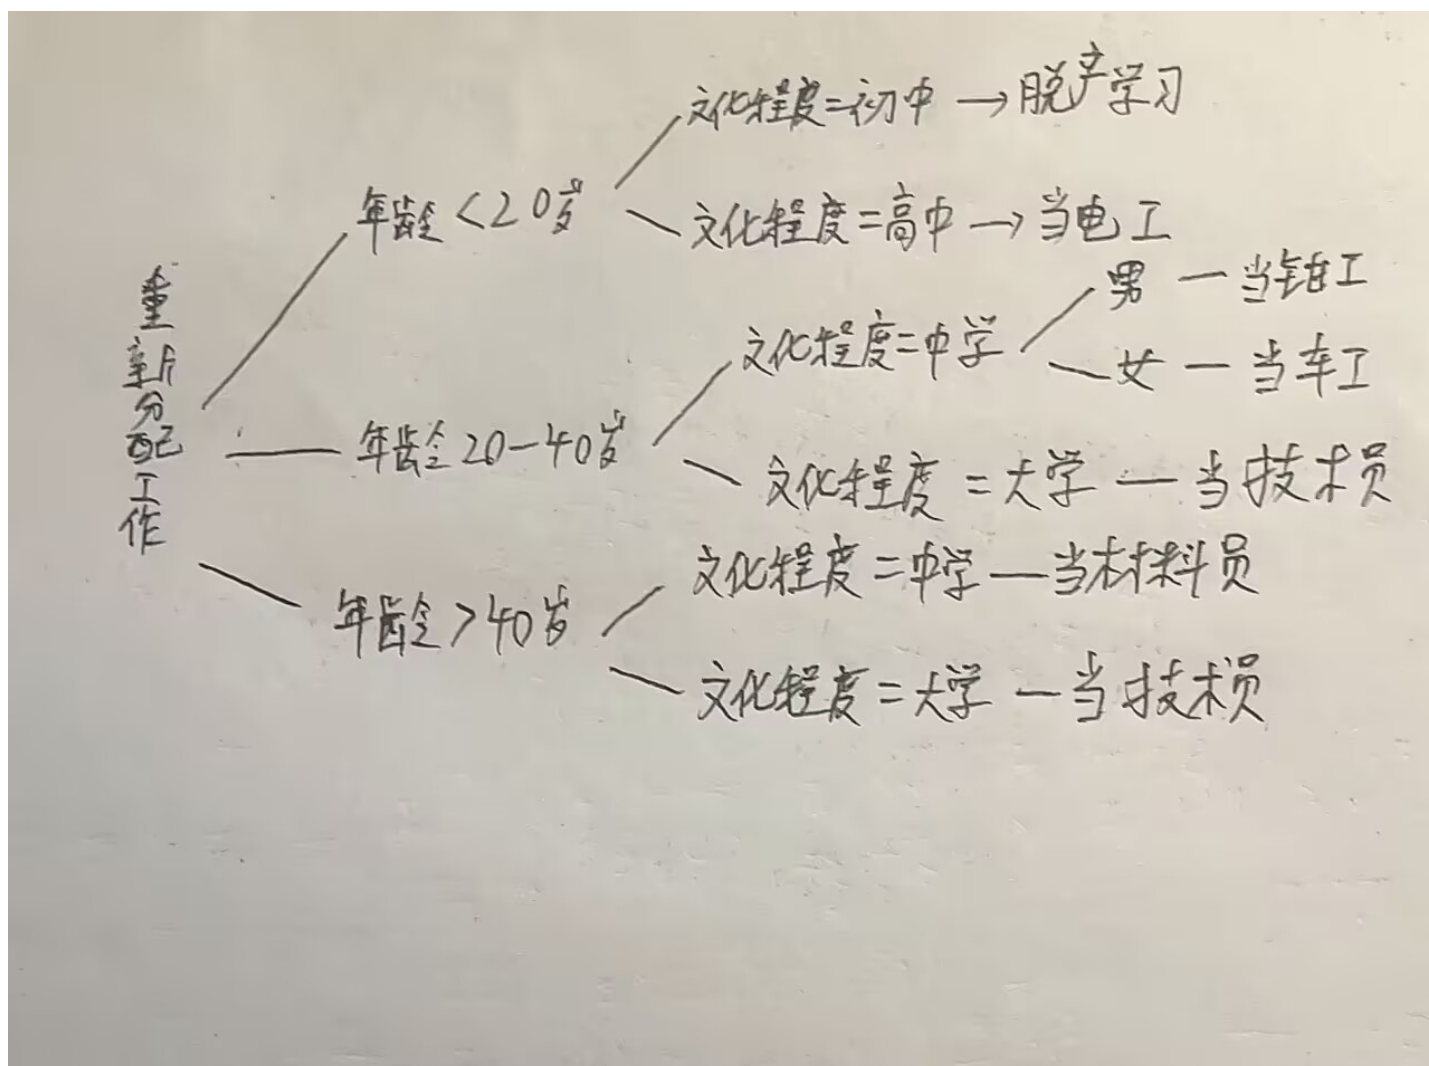 重新分配工作
年龄<20岁
文化程度=初中 → 脱产学习
文化程度=高中 → 当电工
年龄20-40岁
文化程度=中学
男 — 当钳工
女 — 当车工
文化程度=大学 — 当技术员
年龄>40岁
文化程度=中学 — 当材料员
文化程度=大学 — 当技术员